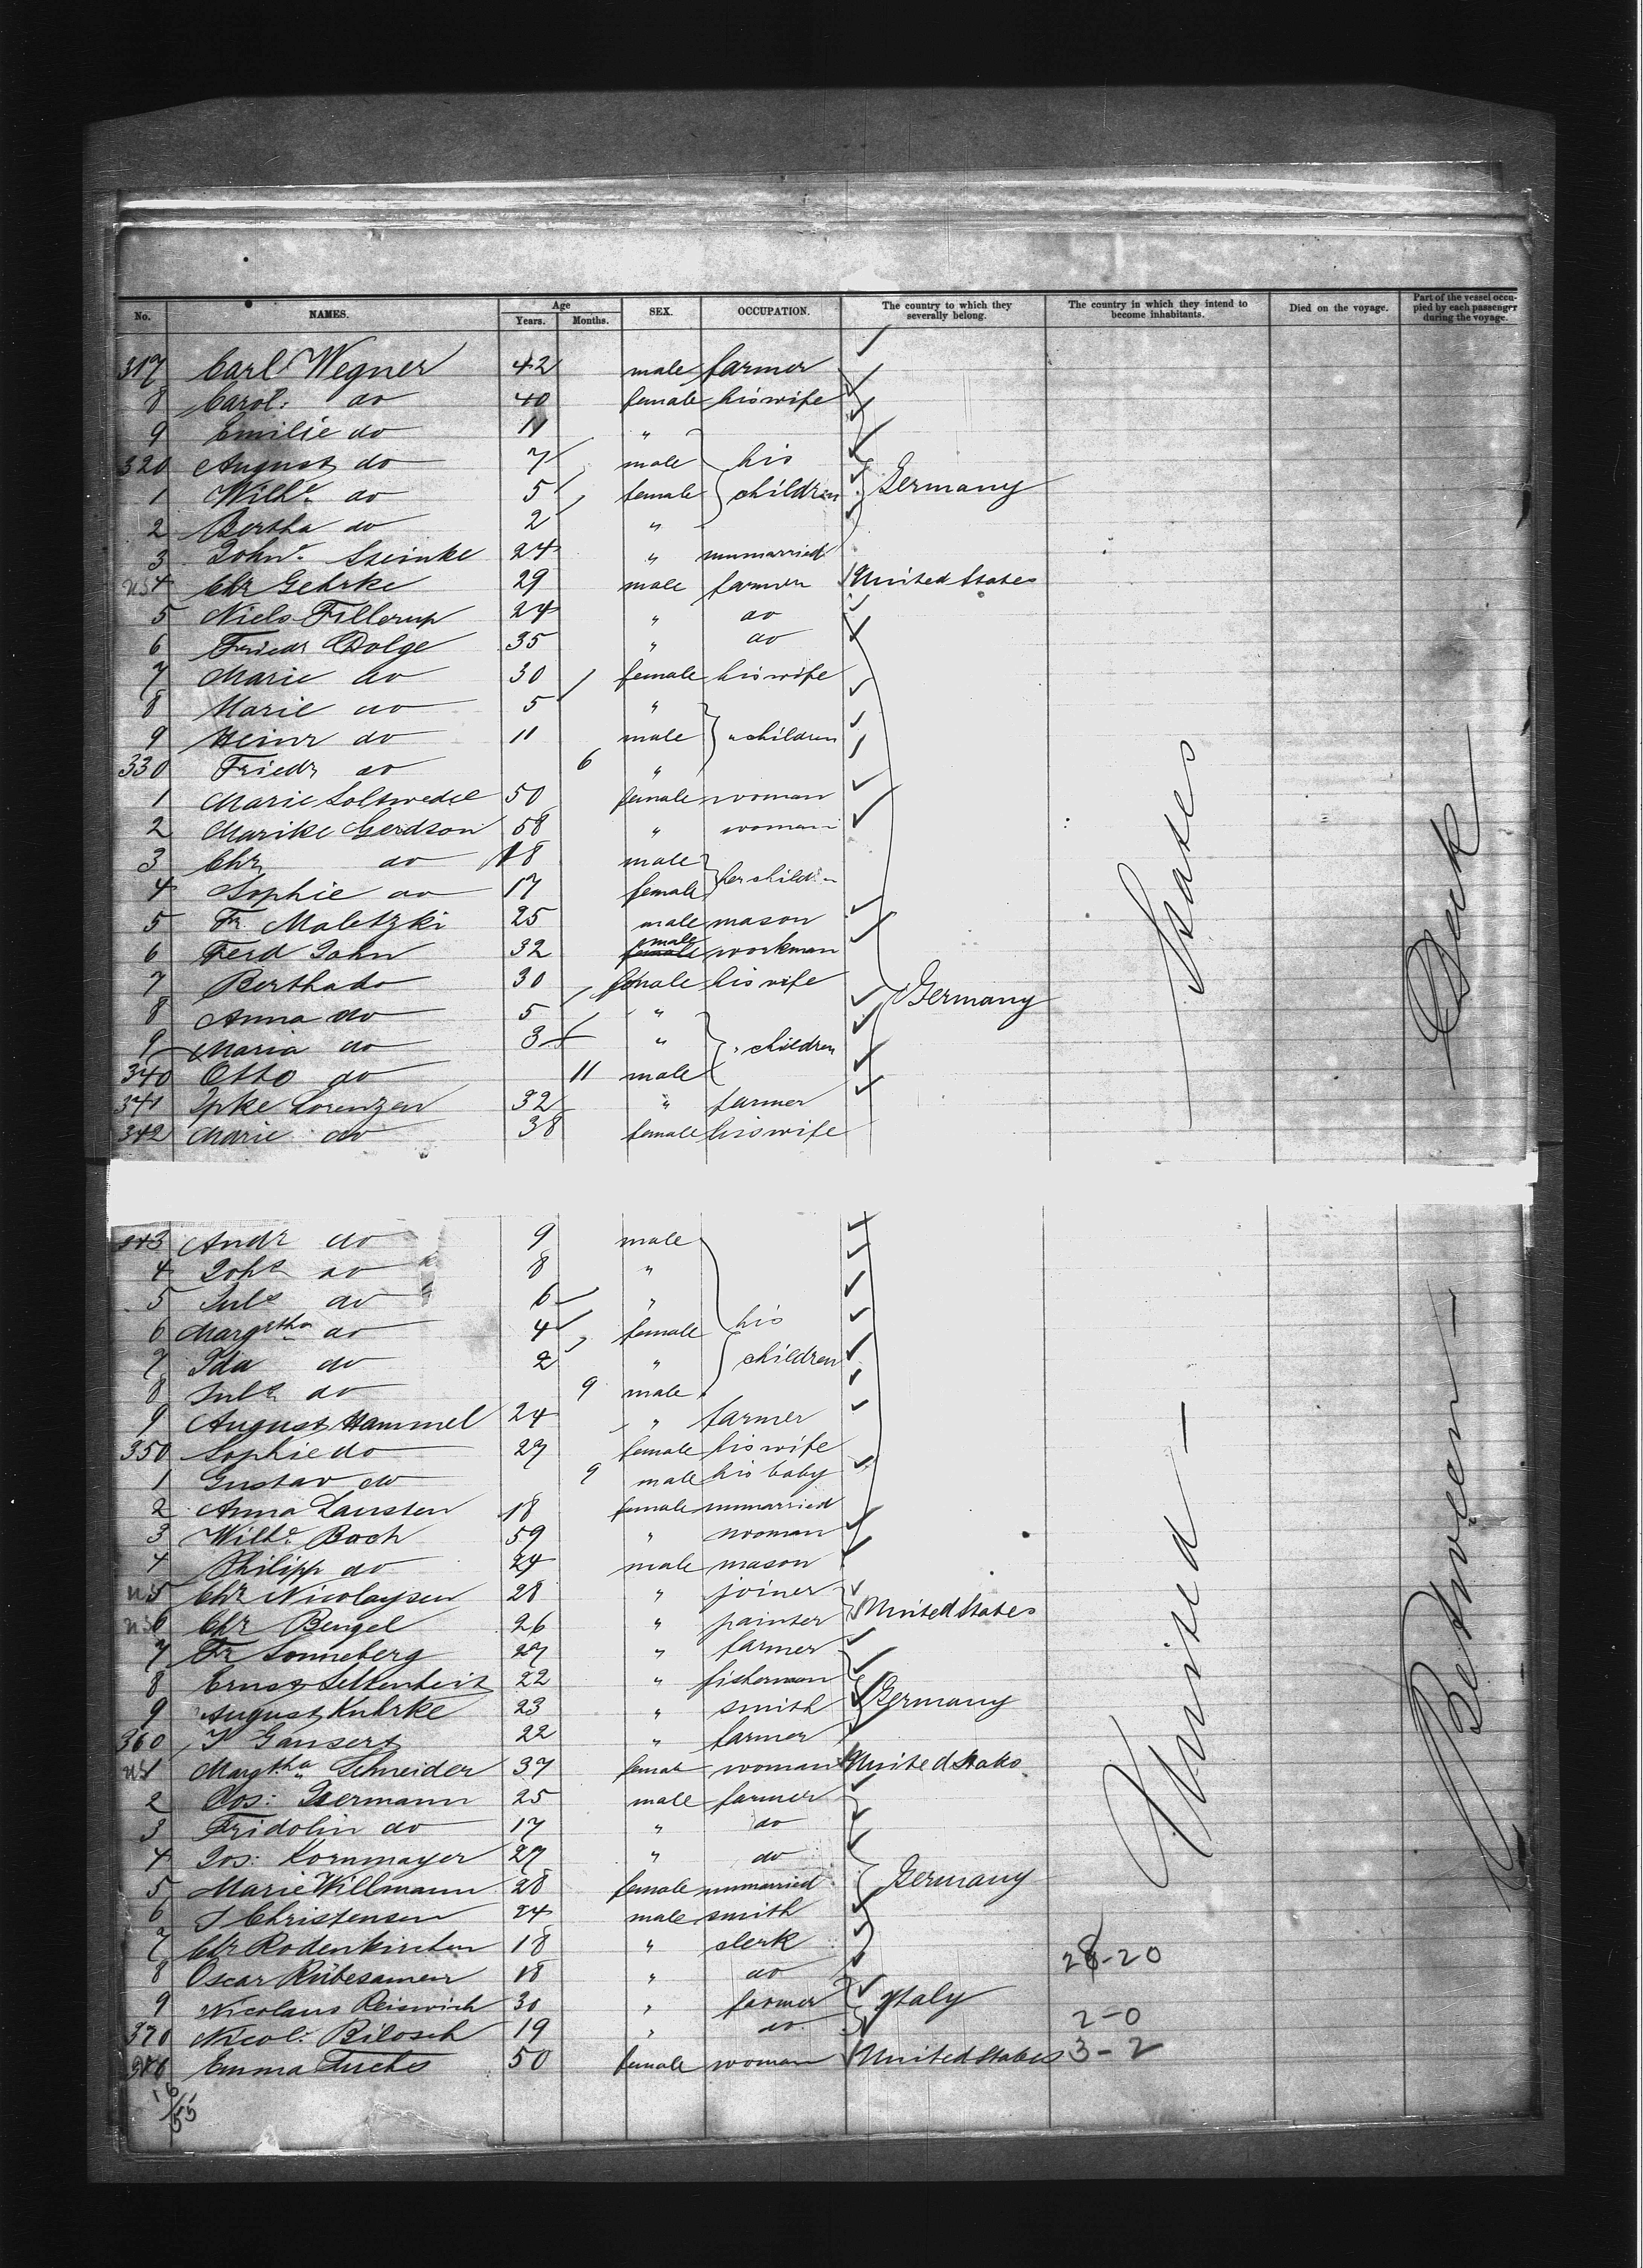 No. NAMES. Age Years. Months. SEX. OCCUPATION. The country to which they severally belong. The country in which they intend to become inhabitants. Died on the voyage. Part of the vessel occupied by each passenger during the voyage.
317 Carl Wegner 42 male farmer
8 Carol: do 40 female his wife
9 Emilie do 11 "
320 August do 7 male his
1 Wilhe do 5 female children Germany
2 Bertha do 2 "
3 Johne Steinke 24 " unmarried
4 Chr Gehrke 29 male farmer United States
5 Niels Fillerup 24 " do
6 Friedr Dolge 35 " do
7 Marie do 30 female his wife
8 Marie do 5 "
9 Heinr do 11 male " children
330 Friedr do 6 "
1 Marie Soltwedel 50 female woman
2 Marike Gerdson 58 " woman
3 Chr do 18 male
4 Sophie do 17 female her children
5 Fr. Maletzki 25 male mason
6 Ferd John 32 male workman
7 Bertha do 30 female his wife
8 Anna do 5 " Germany
9 Maria do 3 " " children
340 Otto do 11 male
341 Ipke Lorenzen 32 " farmer
342 Marie do 38 female his wife
343 Andr do 9 male
4 Johs do 8 "
5 Juls do 6 "
6 Margretha do 4 female his
7 Ida do 2 " children
8 Juls do 9 male
9 August Hammel 24 " farmer
350 Sophie do 27 female his wife
1 Gustav do 9 male his baby
2 Anna Lausten 18 female unmarried
3 Wilhe Boch 59 " woman
4 Philipp do 24 male mason
5 Chr Nicolaysen 28 " joiner
6 Chr Bengel 26 " painter United States
7 Fr Sonneberg 27 " farmer
8 Ernst Seltenheit 22 " fisherman
9 August Kuhrke 23 " smith Germany
360 J Gansert 22 " farmer
1 Margtha Schneider 37 female woman United States
2 Jos: Isermann 25 male farmer
3 Fridolin do 17 " do
4 Jos: Kornmayer 27 " do
5 Marie Willmann 28 female unmarried Germany
6 J Christensen 24 male smith
7 Chr Rodenkirchen 18 " clerk
8 Oscar Rübesamen 18 " do 28-20
9 Nicolaus Reiswich 30 " farmer Italy
370 Nicol: Bilosch 19 " do 2-0
Emma Fuchs 50 female woman United States 3-2
16/55
United States
Between Deck